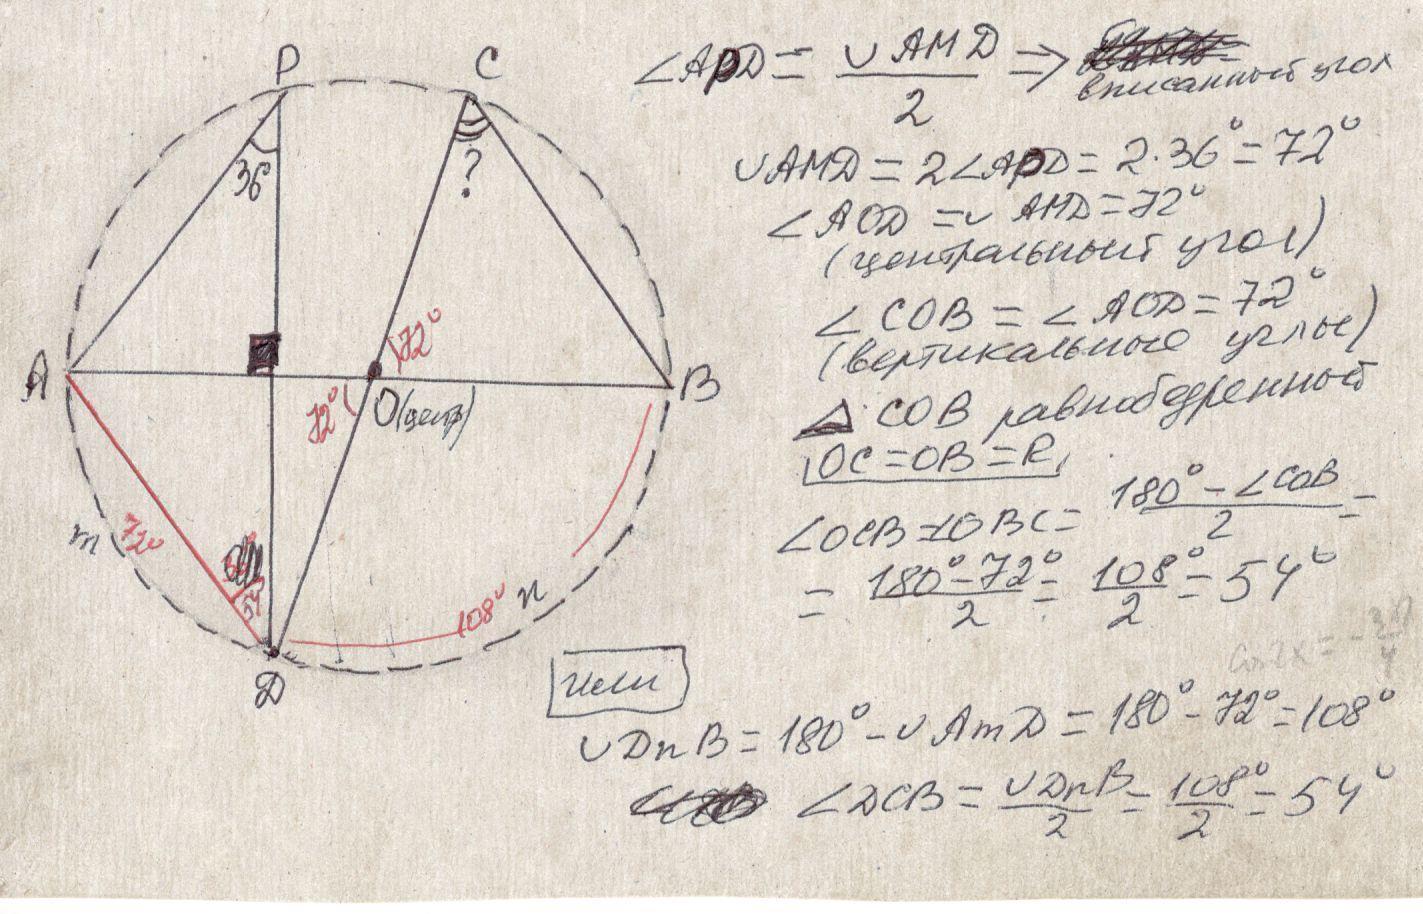 P C
36°
?
72°
A B
72° O(центр)
m 72° 54°
108° n
D
∠APD = ∪AMD / 2 ⇒ вписанный угол
∪AMD = 2∠APD = 2·36° = 72°
∠AOD = ∪ AMD = 72°
(центральный угол)
∠COB = ∠AOD = 72°
(вертикальные углы)
△ COB равнобедренный
OC = OB = R
∠OCB = ∠OBC = 180° - ∠COB / 2 =
= 180° - 72° / 2 = 108° / 2 = 54°
cos 2x = -
или
∪DnB = 180° - ∪AmD = 180° - 72° = 108°
∠DCB = ∪DnB / 2 = 108° / 2 = 54°